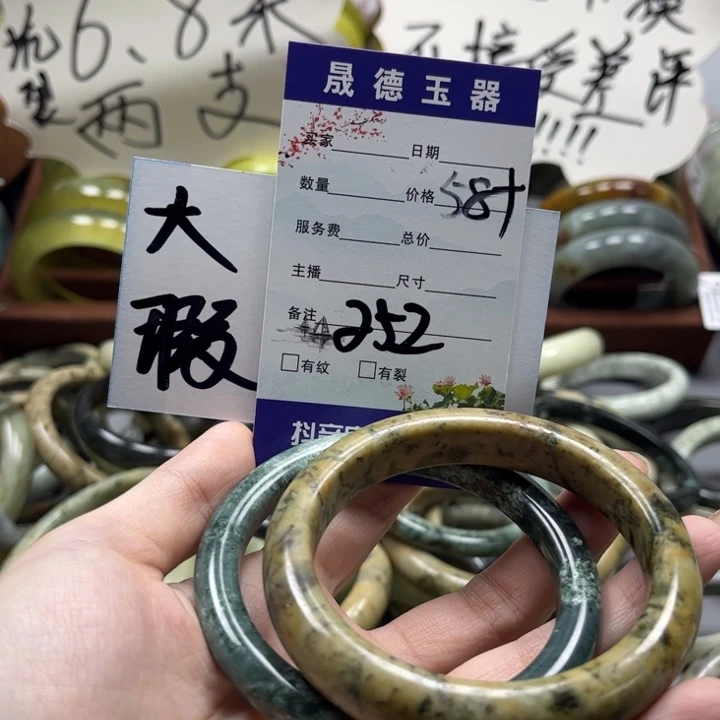 6、8米
两支
不接受差评
!!!!
晟德玉器
买家 日期
数量 价格 58+
服务费 总价
主播 尺寸
备注 252
□有纹 □有裂
大
瑕